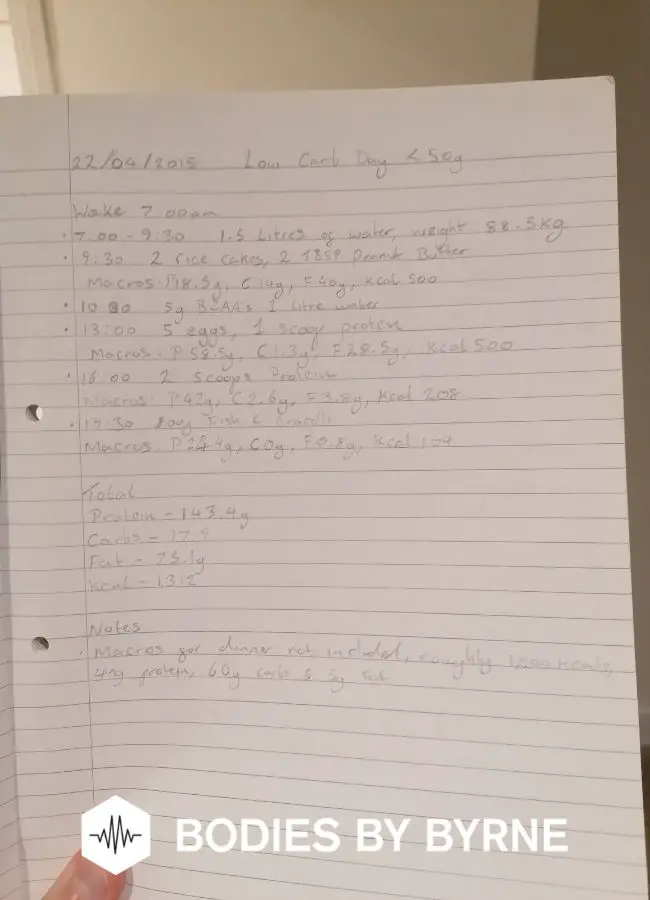 22/04/2015 Low Carb Day < 50g
Wake 7.00am
• 7.00 - 9:30 1.5 Litres of water, weight 88.5kg
• 9:30 2 rice cakes, 2 TBSP Peanut Butter
Macros. P18.5g, C14g, F40g, Kcal 500
5g BCAAs 1 Litre water
• 13:00 5 eggs, 1 scoop protein
Macros. P58.5g, C1.3g, F28.5g, Kcal 500
• 16:00 2 Scoops Protein
Macros. P42g, C2.6g, F3.8g, Kcal 208
Fish & Brocolli
Macros. C0g, F0.8g, Kcal 104
Total
Protein - 143.4g
Carbs - 17.9
Fat - 73.1g
Kcal - 1312
Notes
• Macros for dinner not included, roughly 1,000 Kcals,
protein, 60g carbs & 5g fat
BODIES BY BYRNE